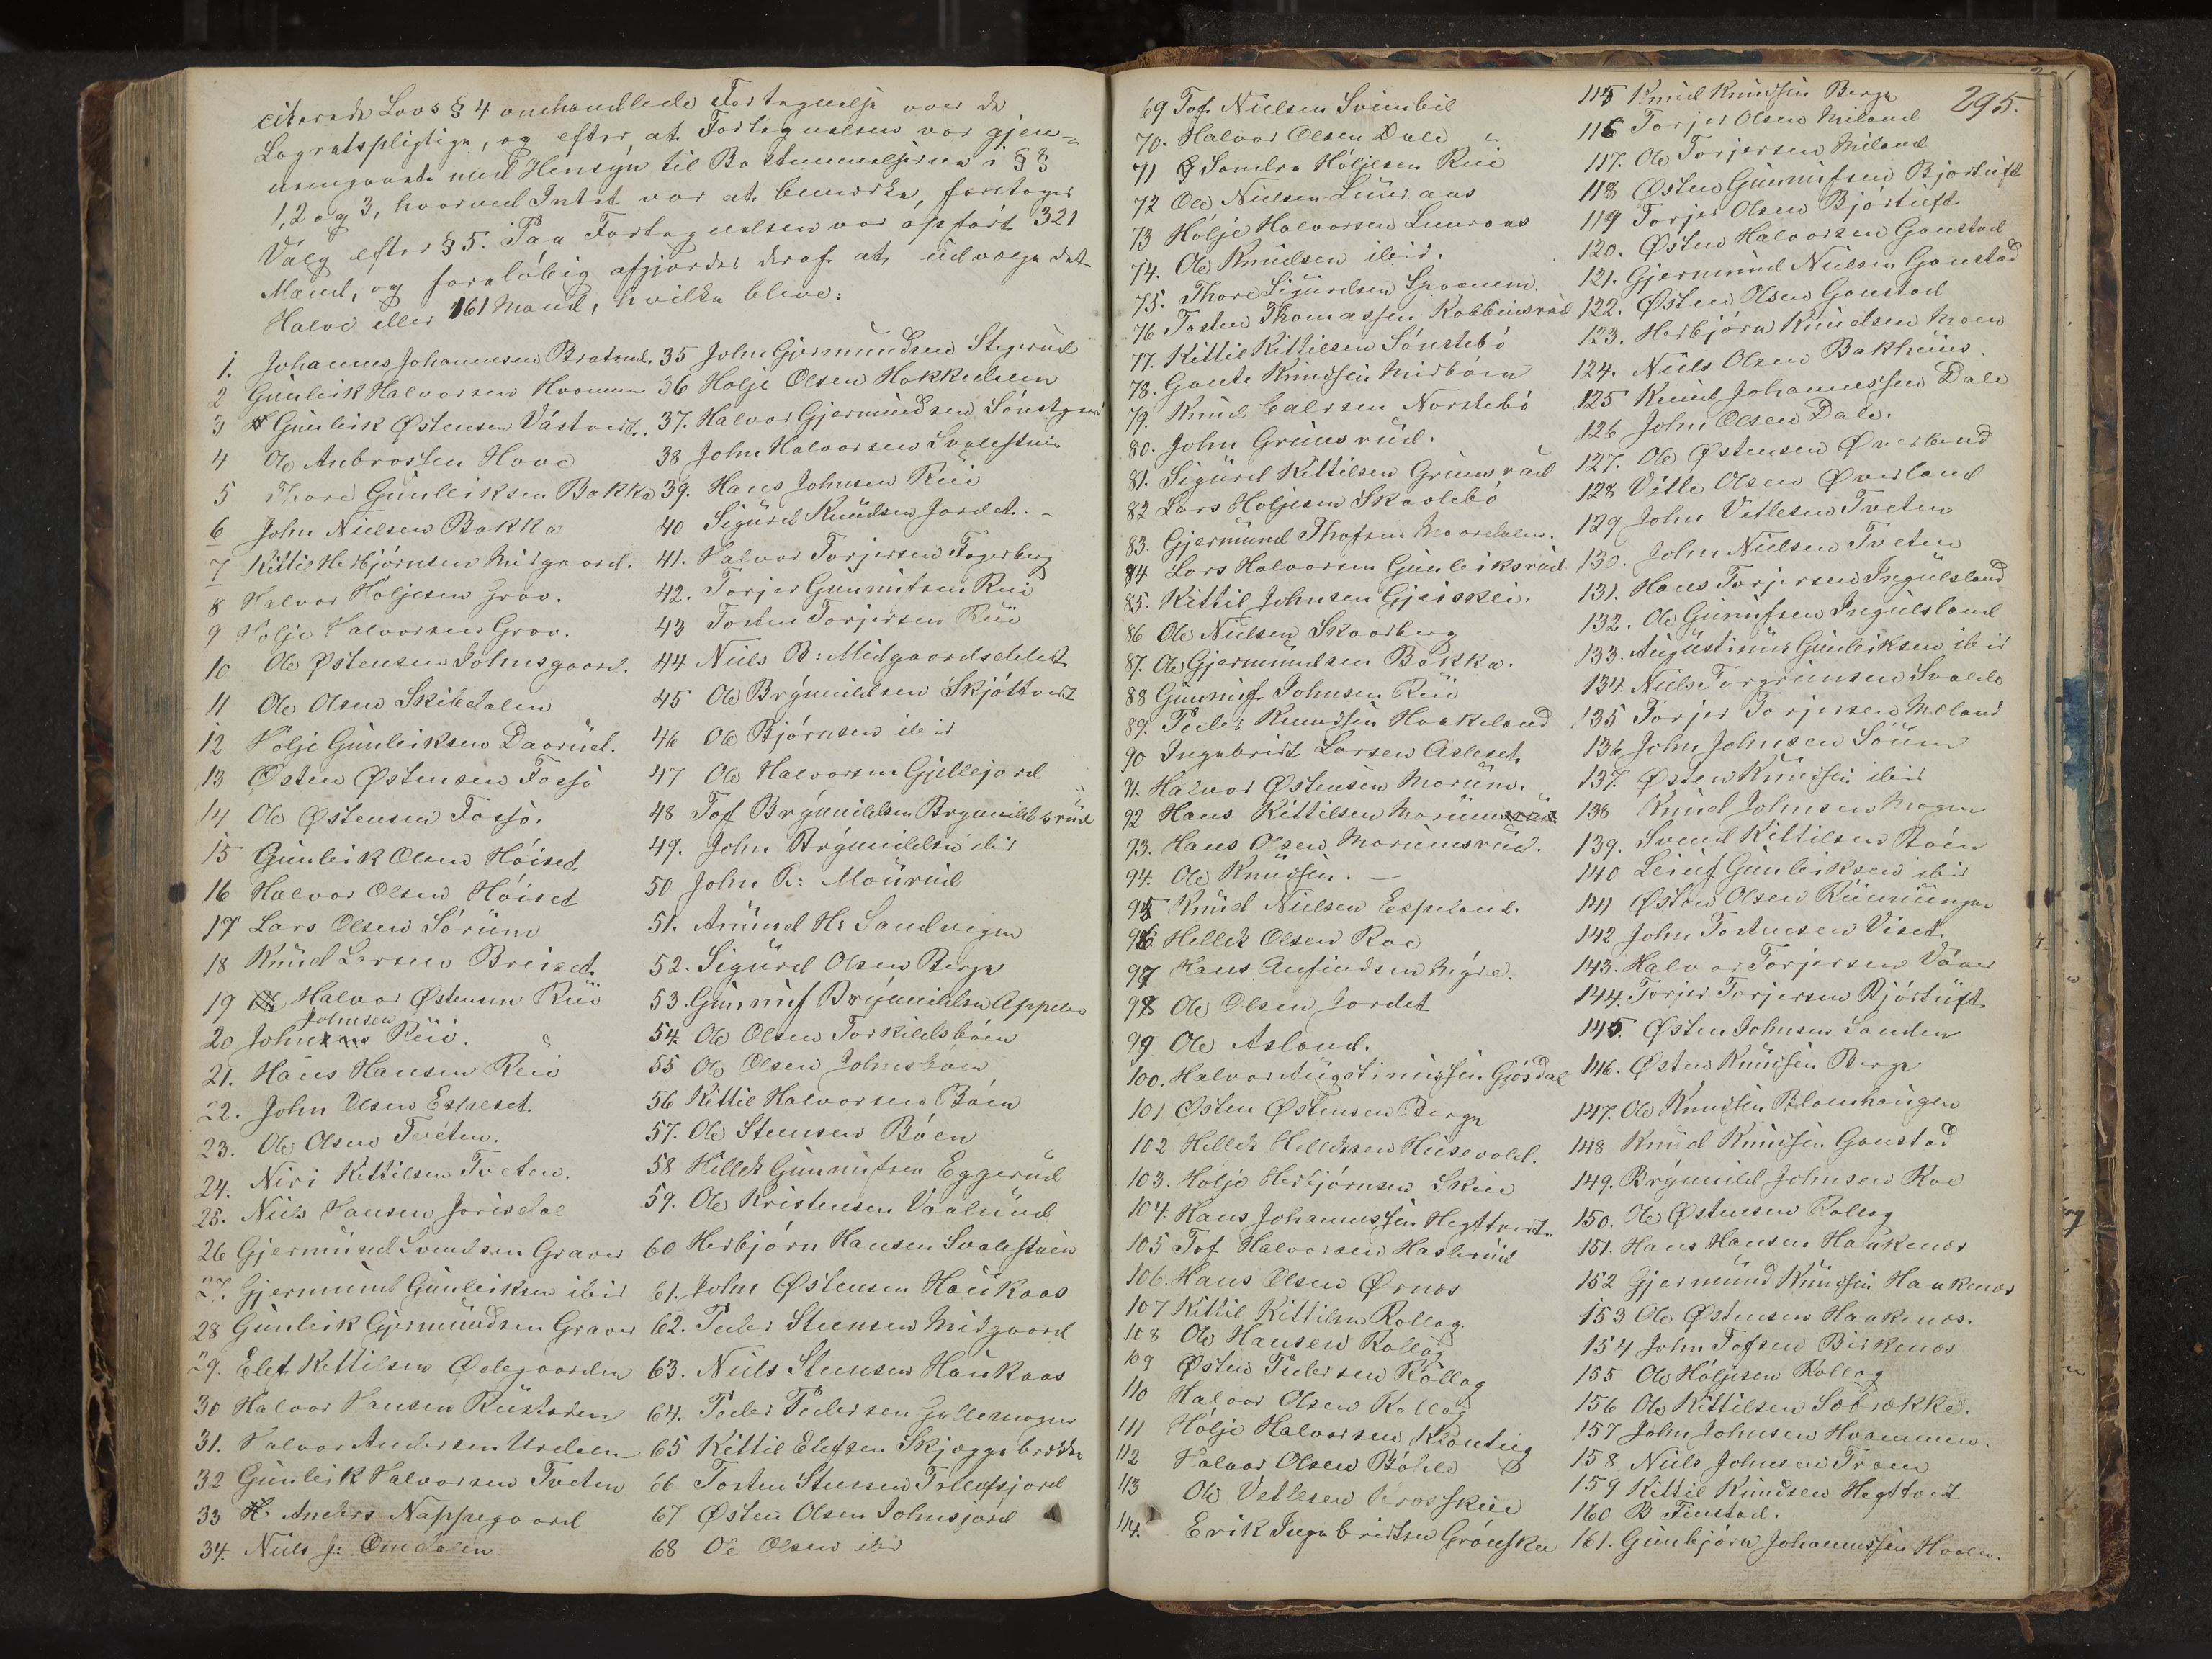 citerede Lovs § 4 omhandlede Fortegnelse over de
Lagretspligtige, og efter at Fortegnelsen var gjen-
nemgaaet med Hensyn til Bestemmelserne i §§
1, 2 og 3, hvorved Intet var at bemærke, foretoges
Valg efter § 5. Paa Fortegnelsen var opført 321
Mand, og foreløbig afgjordes deraf at udvælge det
Halve eller 161 Mand, hvilke bleve:
1. Johannes Johannesen Bratrud.
2 Gunleik Halvorsen Hvammen
3 Gunleik Østensen Våstveit.
4 Ole Anbrossen Hove
5 Thore Gunleiksen Bakka
6 John Nielsen Bakka
7 Kittil Herbjørnsen Midgaard.
8 Halvor Høljesen Grov.
9 Hølje Halvorsen Grov.
10 Ole Østensen Johnsgaard.
11 Ole Olsen Skibdalen
12 Hølje Gunleiksen Daarud.
13 Østen Østensen Fossjø
14 Ole Østensen Fossjø.
15 Gunleik Olsen Høiset
16 Halvor Olsen Høiset
17 Lars Olsen Sørum
18 Knud Larsen Breiset.
19 Halvor Østensen Rüe
20 John Johnsen Rüe.
21. Hans Hansen Rue
22. John Olsen Espeset.
23. Ole Olsen Tveten.
24. Niri Kittilsen Tveten.
25. Niels Hansen Jorisdal
26 Gjermund Svendsen Graver
27. Gjermund Gunleiksen ibid
28 Gunleik Gjermundsen Graver
29. Elef Kittilsen Ødegaarden
30 Halvor Hansen Rustaden
31. Halvor Andersen Urdaen
32 Gunleik Halvorsen Tveten
33 H. Anders Nappegaard
34. Niels J: Omdalen.
35 John Gjermundsen Stegerud
36 Holje Olsen Hakkedsen
37. Halvor Gjermundsen
38 John Halvorsen Svalestuen
39. Hans Johnsen Rüe
40 Sigurd Knudsen Jordet. -
41. Halvor Torjersen Fagerberg
42. Torjer Gunnufsen Rue
43 Tosten Torjersen Rüe
44 Niels B: Midgaardseblet
45 Ole Brynildsen Skjøttvet
46 Ole Bjørnsen ibid
47 Ole Halvorsen Gjellejord
48 Tof Brynildsen Brynildsrud
49. John Brynildsen ibid
50 John K: Mourud
51. Amund H: Sandvegen
52. Sigurd Olsen Berge
53. Gunnuf Brynildsen Appelen
54. Ole Olsen Torkildsbøen
55 Ole Olsen Johnsbøen
56 Kittil Halvorsen Bøen
57. Ole Steensen Bøen
58 Hellek Gunnufsen Eggerud
59. Ole Kristensen Vaalund
60 Herbjørn Hansen Svalestuen
61. John Østensen Haukaas
62. Peder Steensen Midgaard
63. Niels Steensen Haukaas
64. Peder Pedersen Gollemogen
65 Kittil Elefsen Skjæggebrekke
66 Tosten Steensen Trllefsjord
67 Østen Olsen Johnsjord
68 Ole Olsen ibid
295.
69 Tof. Nielsen Svinbil
70. Halvor Olsen Dale
71 Sondre Høljesen Rue
72 Ole Nielsen Luuraas
73 Hølje Halvorsen Luuraas
74. Ole Knudsen ibid.
75. Thore Sigurdsen Spaanem.
76 Tosten Thomassen Kobbinsrud
77. Kittil Kittilsen Sønstebø
78. Gaute Knudsen Midbøen
79. Knud Carlsen Norstebø
80. John Grimsrud.
81. Sigurd Kittilsen Grimsrud
82 Lars Holjesen Skaalebø
83. Gjermund Thofsen Maardalen.
84. Lars Halvorsen Gunleiksrud
85. Kittil Johnsen Gjeiskei.
86 Ole Nielsen Skaarberg
87. Ole Gjermundsen Bakka.
88 Gunnuf Johnsen Rüe
89. Peder Knudsen Haakeland
90 Ingebrigt Larsen Asleset.
91. Halvor Østensen Morum.
92 Hans Kittilsen Morum
93. Hans Olsen Morumsrud.
94. Ole Knudsen. —
95 Knud Nielsen Espeland.
96 Hellek Olsen Roe
97 Hans Anfindsen Myre.
98 Ole Olsen Jordet
99 Ole Asland.
100. Halvor Augstinussen Gjøsdal
101. Østen Østensen Berge
102 Hellek Helleksen Husevold.
103. Holje Herbjørnsen Skeie
104. Hans Johannessen Hegttveit.
105 Tof Halvorsen Haslerud
106. Hans Olsen Ørnes
107 Kittil Kittilsen Rollag.
108 Ole Hansen Rollag
109 Østen Pedersen Rollag
110 Halvor Olsen Rollag
111 Hølje Halvorsen Kløvteig
112 Halvor Olsen Bøhle
113 Ole Vetlesen Vrorskeie
114. Erik Ingebrittsen Grønskei
115 Knud Knudsen Berge
116 Torjer Olsen Miland
117. Ole Torjersen Miland
118 Østen Gunnufsen Bjørtuft
119 Torjer Olsen Bjørtuft
120. Østen Halvorsen Gaustad
121. Gjermund Nielsen Gaustad
122. Østen Olsen Gaustad
123. Herbjørn Knudsen Moen
124. Niels Olsen Bakhuus.
125 Knud Johannessen Dale
126 John Olsen Dale.
127. Ole Østensen Øverland
128 Vetle Olsen Øverland
129 John Vetlesen Tveten
130. John Nielsen Tveten
131. Hans Torjersen Ingulsland
132. Ole Gunnufsen Ingulsland
133. Augustinus Gunleiksen ibid
134. Niels Torgrimsen Svadde
135 Torjer Torjersen Mæland
136 John Johnsen Søum
137. Østen Knudsen ibid
138 Knud Johnsen Mogen
139. Svend Kittilsen Bøen
140 Leiuf Gunleiksen ibid
141 Østen Olsen Ruemungen
142 John Tostensen Veset.
143. Halvor Torjersen Våaer
144. Torjer Torjersen Bjørtuft.
145. Østen Johnsen Sanden
146. Østen Knudsen Berge
147. Ole Knudsen Blomhaugen
148 Knud Knudsen Gaustad
149. Brynild Johnsen Roe
150. Ole Østensen Rollag
151. Hans Hansen Haakenæs
152 Gjermund Knudsen Haakenæs
153 Ole Østensen Haakenæs.
154 John Tofsen Birkenæs
155 Ole Høljesen Rollag
156 Ole Kittilsen Sæbrække.
157 John Johnsen Hvammen.
158 Niels Johnsen Traen
159 Kittil Knudsen Hegtveit
160 B Finstad.
161. Gunbjørn Johannessen Hvalen.